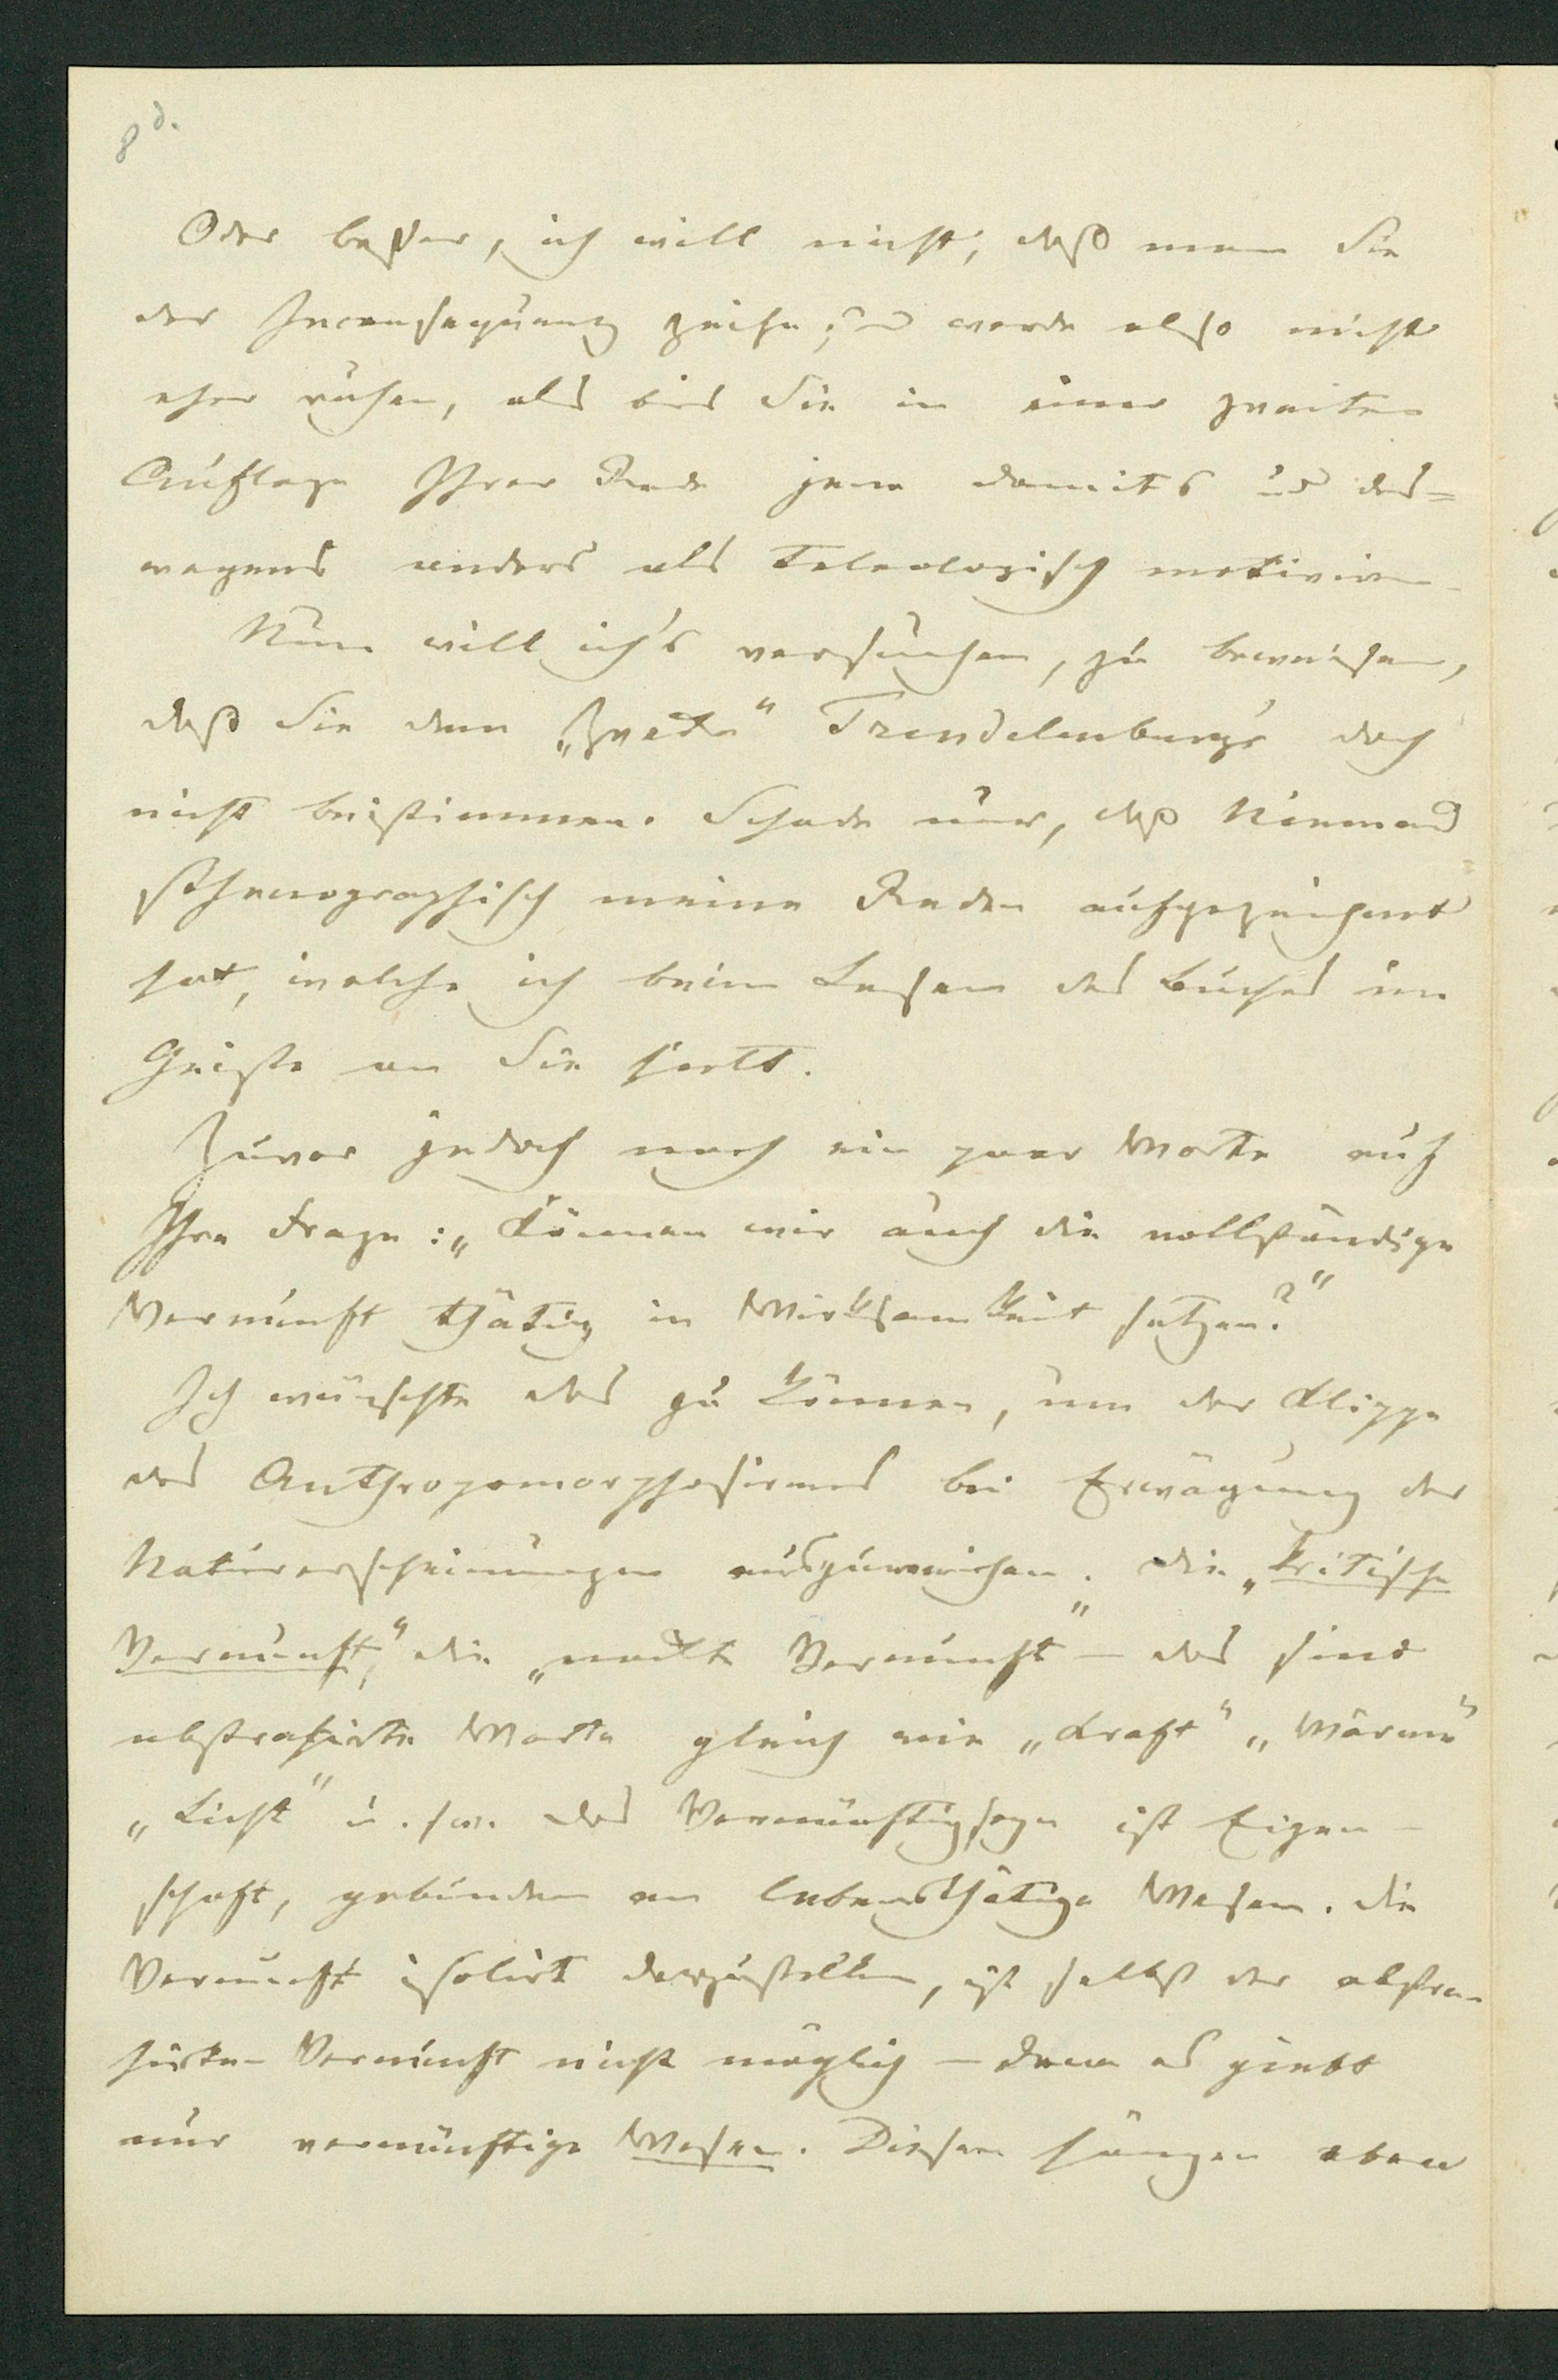 8d.
Oder besser, ich will nicht, daß man Sie
der Inconsequenz zeihe; und werde also nicht
eher ruhen, als bis Sie in einer zweiten
Auflage Ihrer Rede jene damits und des=
wegens anders als teleologisch motiviren
Nun will ich's versuchen, zu beweisen,
daß Sie dem „Zwecke“ Trendelenburg's doch
nicht beistimmen. Schade nur, daß Niemand
sthenographisch meine Reden aufgezeichnet
hat, welche ich beim Lesen des Buches im
Geiste an Sie hielt.
Zuvor jedoch noch ein paar Worte auf
Ihre Frage: „Können wir auch die vollständige
Vernunft thätig in Wirksamkeit setzen?“
Ich wünschte das zu können, um der Klippe
des Anthropomorphosirens bei Erwägung der
Naturerscheinungen auszuweichen. Die „kritische
Vernunft,“ die „nackte Vernunft“ – das sind
abstrahirte Worte gleich wie „Kraft“ „Wärme“
„Licht“ u. sw. Das Vernünftigseyn ist Eigen-
schaft, gebunden an lebensthätige Wesen. Die
Vernunft isolirt darzustellen, ist selbst der abstra-
hirten Vernunft nicht möglich – denn es giebt
nur vernünftige Wesen. Diesen hängen eben